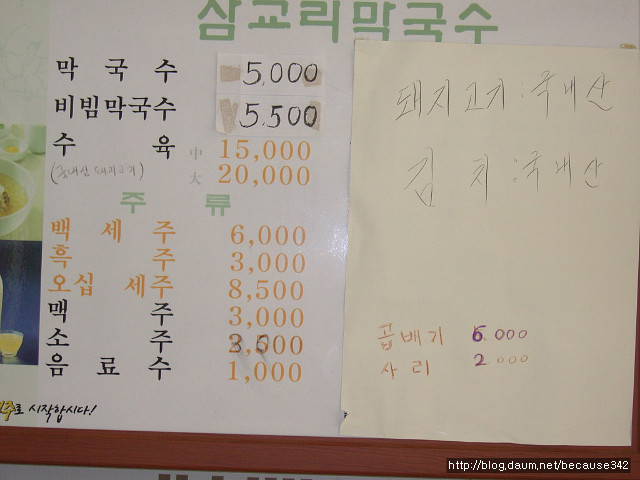 삼교리막국수
막국수 5,000
비빔막국수 5,500
수육 中 15,000
(국내산 돼지고기) 大 20,000
주류
백세주 6,000
흑주 3,000
오십세주 8,500
맥주 3,000
소주 3,000
음료수 1,000
주로 시작합시다!
돼지고기:국내산
김치:국내산
곱배기 6,000
사리 2000
http://blog.daum.net/because342